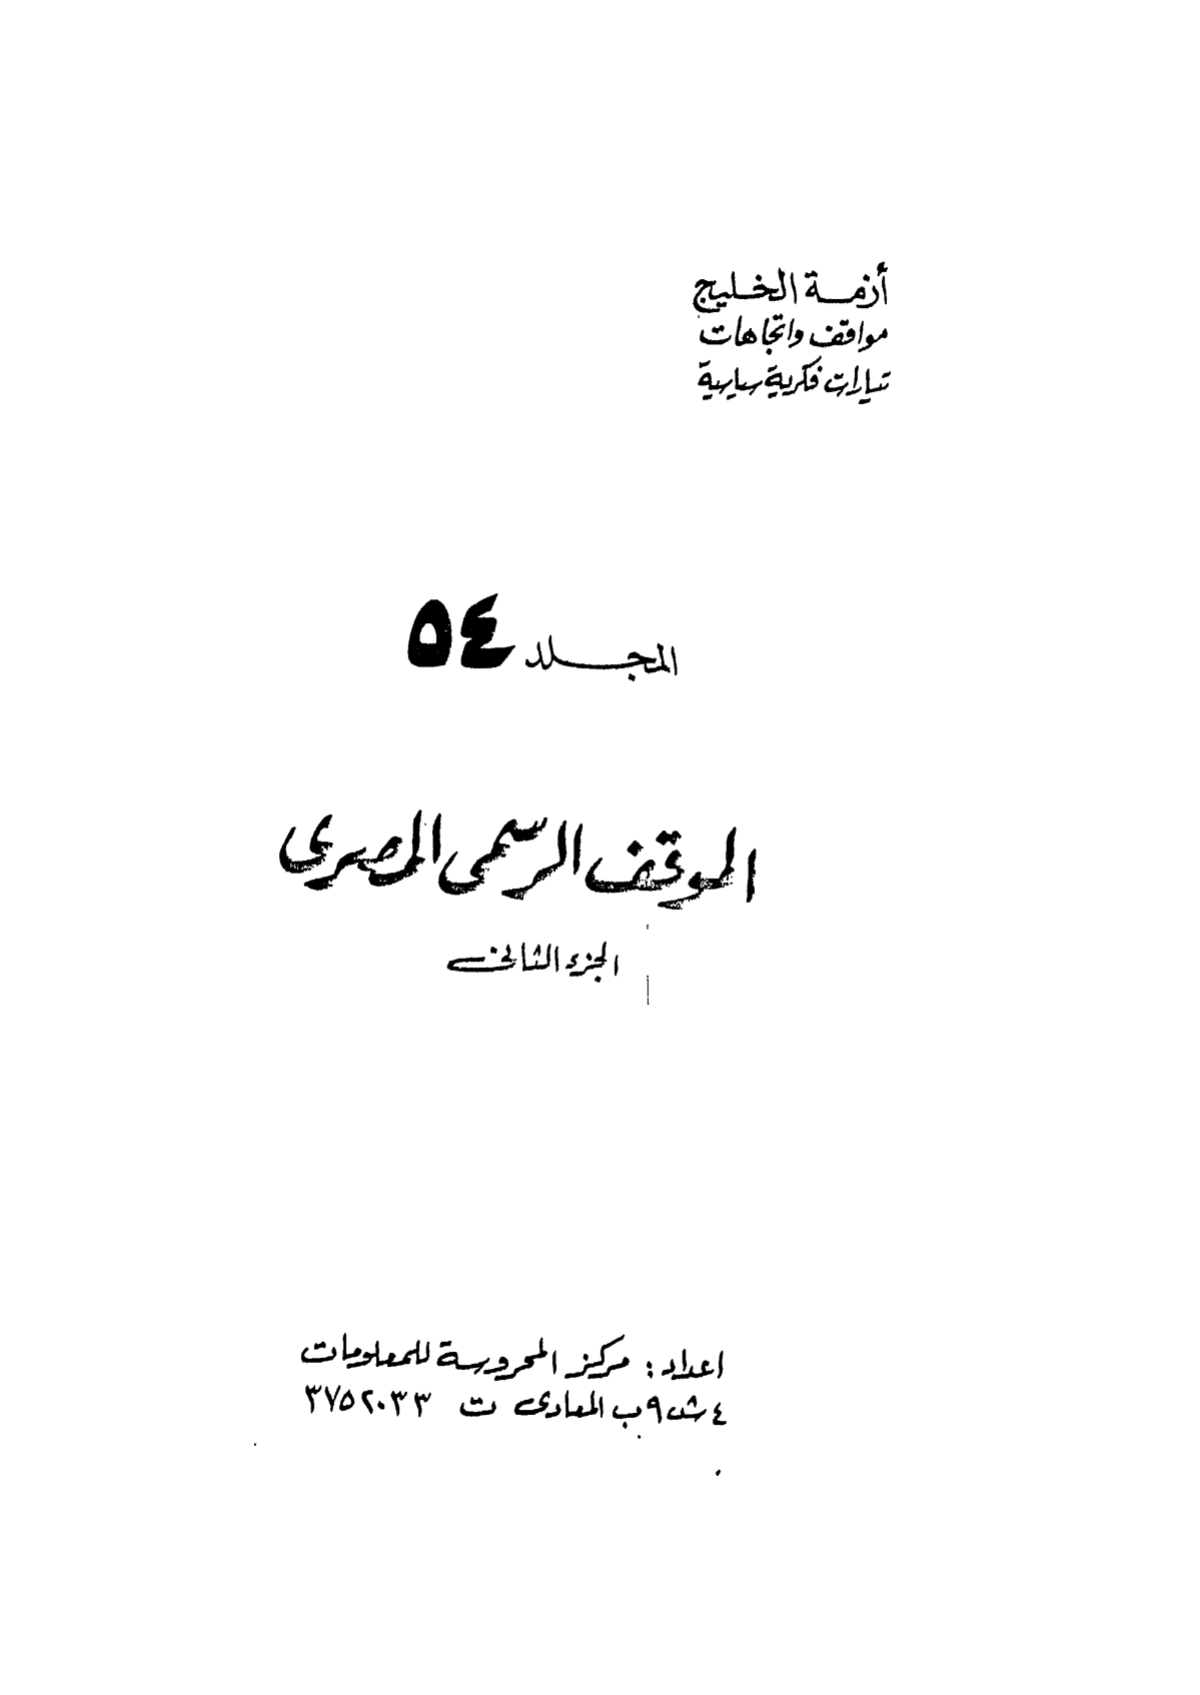 أزمة الخليج
مواقف واتجاهات
تيارات فكرية سياسية
المجلد ٥٤
الموقف الرسمى المصرى
الجزء الثانى
اعداد : مركز المحروسة للمعلومات
٤ ش ٩ب المعادى ت ٣٧٥٢٠٣٣